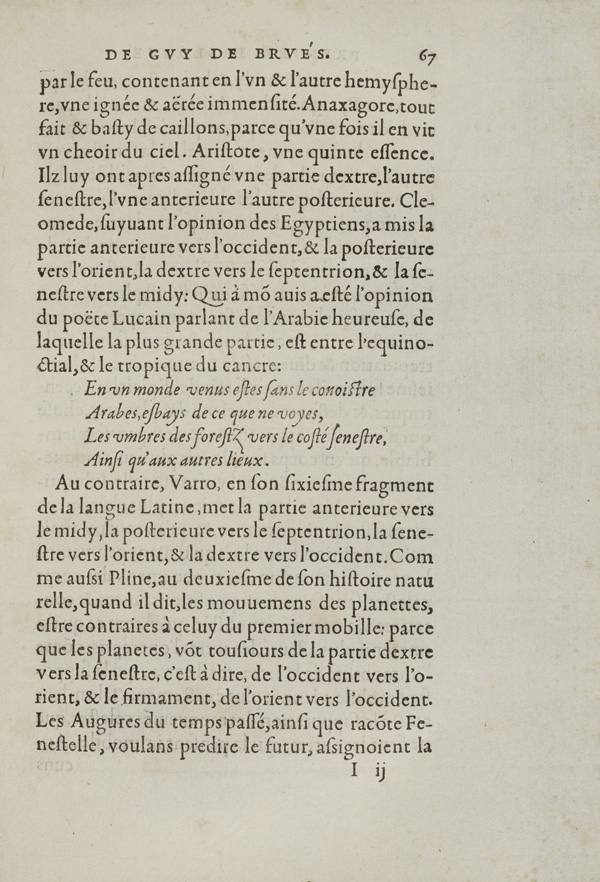 DE GVY DE BRVÉS. 67
par le feu, contenant en l'vn & l'autre hemysphe-
re, vne ignée & aërée immensité. Anaxagore, tout
fait & basty de caillons, parce qu'vne fois il en vit
vn cheoir du ciel. Aristote, vne quinte essence.
Ilz luy ont apres assigné vne partie dextre, l'autre
senestre, l'vne anterieure l'autre posterieure. Cle-
omede, suyuant l'opinion des Egyptiens, a mis la
partie anterieure vers l'occident, & la posterieure
vers l'orient, la dextre vers le septentrion, & la se-
nestre vers le midy: Qui à mõ auis a esté l'opinion
du poëte Lucain parlant de l'Arabie heureuse, de
laquelle la plus grande partie, est entre l'equino-
ctial, & le tropique du cancre:
En vn monde venus estes sans le conoistre
Arabes, esbays de ce que ne voyes,
Les vmbres des forestz vers le costé senestre,
Ainsi qu'aux autres lieux.
Au contraire, Varro, en son sixiesme fragment
de la langue Latine, met la partie anterieure vers
le midy, la posterieure vers le septentrion, la sene-
stre vers l'orient, & la dextre vers l'occident. Com
me aussi Pline, au deuxiesme de son histoire natu
relle, quand il dit, les mouuemens des planettes,
estre contraires à celuy du premier mobille: parce
que les planetes, võt tousiours de la partie dextre
vers la senestre, c'est à dire, de l'occident vers l'o-
rient, & le firmament, de l'orient vers l'occident.
Les Augures du temps passé, ainsi que racõte Fe-
nestelle, voulans predire le futur, assignoient la
I ij